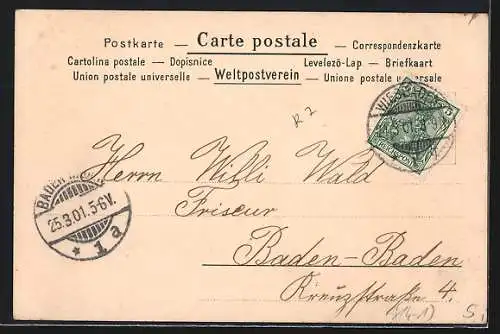 Postkarte — Carte postale — Correspondenzkarte
Cartolina postale — Dopisnice Levelező-Lap — Briefkaart
Union postale universelle — Weltpostverein — Unione postale universale
R 2
Herrn Willi Wald
Friseur
Baden-Baden
Kreuzstraße 4.
BADEN
25.3.01.5-6V.
* 1 a
WIESBADEN
5
S.